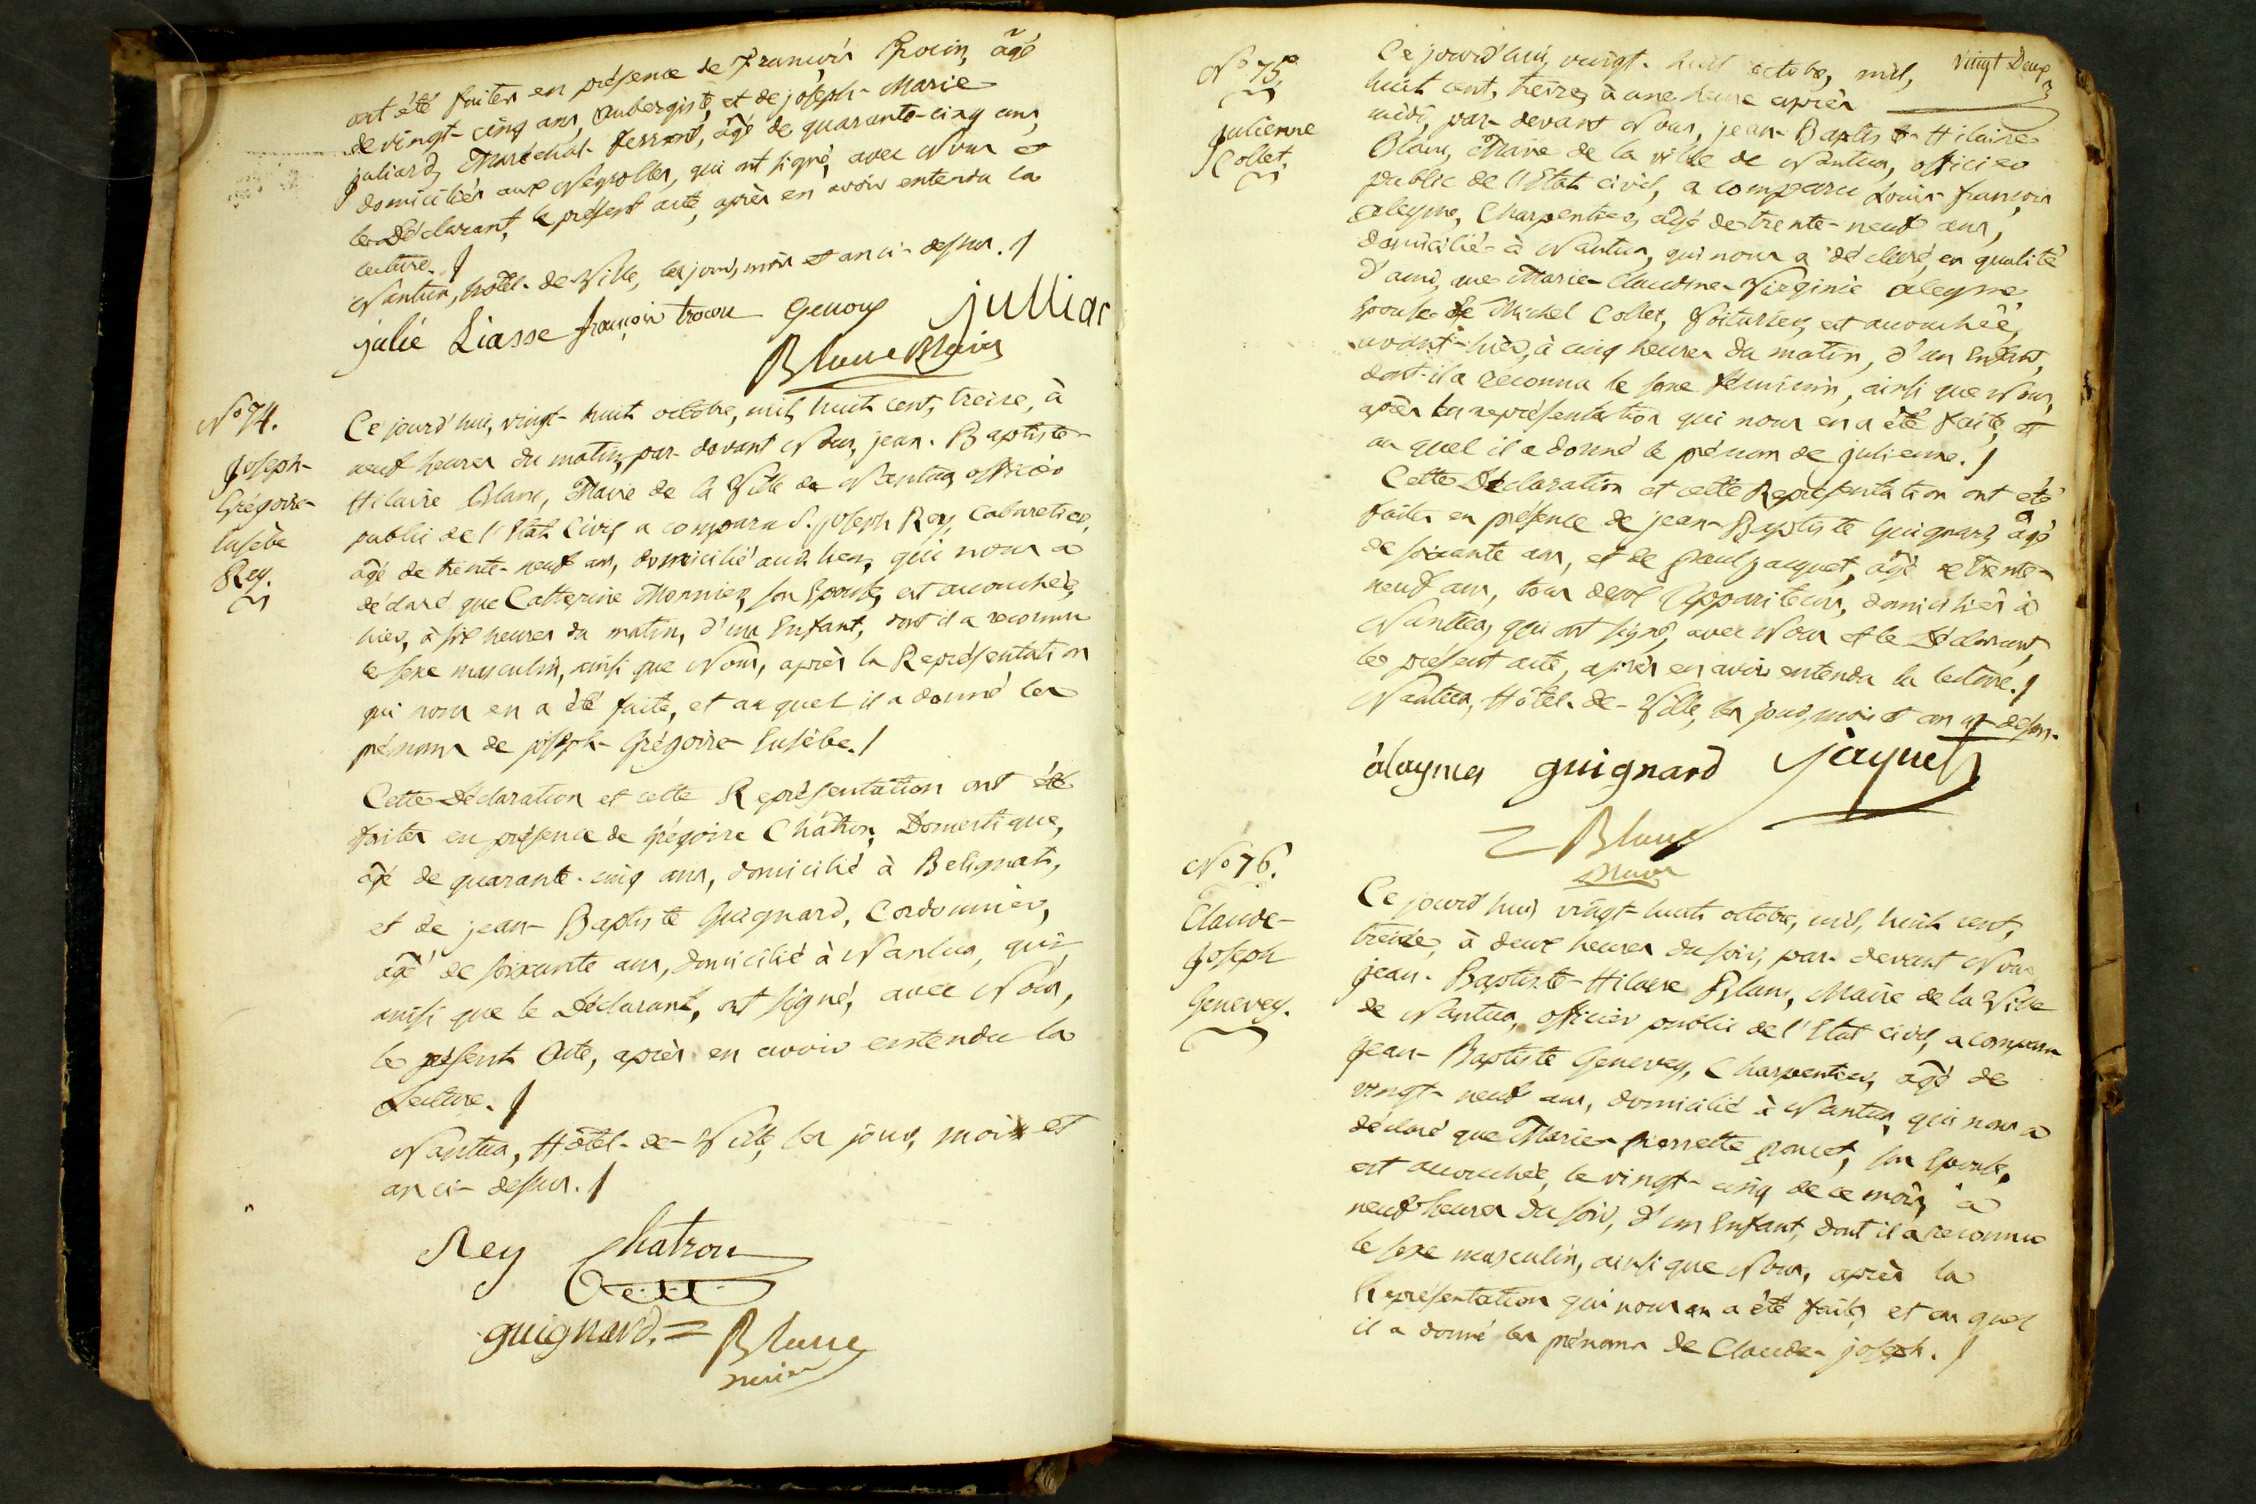 ont été faites en présence de François Trocon, âgé
de vingt-cinq ans, aubergiste, et de joseph-Marie
juliard, Maréchal-ferrant, âgé de quarante-cinq ans,
domiciliés aux Neyrolles, qui ont signé, avec Nous et
le Déclarant, le présent acte, après en avoir entendu la
lecture./
Nantua, hôtel-de-Ville, les jour, mois et an ci-dessus./
julié Liasse françois trocon Genoux julliar
Blanc Maire
N° 74.
Joseph-
Grégoire-
Eusèbe
Rey.
Ce jourd'hui, vingt-huit octobre, mil, huit cent, treize, à
neuf heures du matin, par-devant Nous, jean-Baptiste-
Hilaire Blanc, Maire de la Ville de Nantua, officier
public de l'Etat Civil, a comparu S. joseph Rey, Cabaretier,
âgé de trente-neuf ans, domicilié aud. lieu, qui nous a
déclaré que Catherine Monnier, son Epouse, est accouchée,
hier, à six heures du matin, d'un Enfant, dont il a reconnu
le sexe masculin, ainsi que Nous, après la Représentation
qui nous en a été faite, et auquel il a donné les
prénoms de joseph-Grégoire-Eusèbe./
Cette Déclaration et cette Représentation ont été
faites en présence de Grégoire Châtron, Domestique,
âgé de quarante-cinq ans, domicilié à Belignat,
et de jean-Baptiste Guignard, Cordonnier,
âgé de soixante ans, domicilié à Nantua, qui,
ainsi que le Déclarant, ont signé, avec Nous,
le présent Acte, après en avoir entendu la
Lecture./
Nantua, Hôtel-de-Ville, les jour, mois et
an ci-dessus./
Rey Chatron
guignard. = Blanc
maire
vingt Deux
N° 75.
Julienne
Collet.
Ce jourd'hui, vingt-huit octobre, mil,
huit cent, treize, à une heure après
midi, par-devant Nous, jean-Baptiste-Hilaire
Blanc, Maire de la ville de Nantua, officier
public de l'Etat civil, a comparu Louis-françois
Aleyme, Charpentier, âgé de trente-neuf ans,
domicilié à Nantua, qui nous a déclaré, en qualité
d'ami, que Marie-Claudine-Virginie Aleyme,
Epouse de Michel Collet, Voiturier, est accouchée,
avant-hier, à cinq heures du matin, d'un Enfant,
dont il a reconnu le sexe féminin, ainsi que Nous,
après la représentation qui nous en a été faite, et
auquel il a donné le prénom de julienne./
Cette Déclaration et cette Représentation ont été
faites en présence de jean-Baptiste Guignard, âgé
de soixante ans, et de Paul jacquet, âgé de trente-
neuf ans, tous deux Appariteurs, domiciliés à
Nantua, qui ont signé, avec Nous et le Déclarant,
le présent acte, après en avoir entendu la lecture./
Nantua, Hôtel-de-Ville, les jour, mois et an ci-dessus.
àlaymes guignard jaquet
= Blanc
Maire
N° 76.
Claude-
Joseph
Genevey.
Ce jourd'hui vingt-huit octobre, mil, huit cent,
treize, à deux heures du soir, par-devant Nous
jean-Baptiste-Hilaire Blanc, Maire de la Ville
de Nantua, officier public de l'Etat civil, a comparu
jean-Baptiste Genevey, Charpentier, âgé de
vingt-neuf ans, domicilié à Nantua, qui nous a
déclaré que Marie-pierrette poncet, son Epouse,
est accouchée, le vingt-cinq de ce mois, à
neuf heures du soir, d'un Enfant, dont il a reconnu
le sexe masculin, ainsi que Nous, après la
Représentation qui nous en a été faite, et auquel
il a donné les prénoms de Claude-joseph./